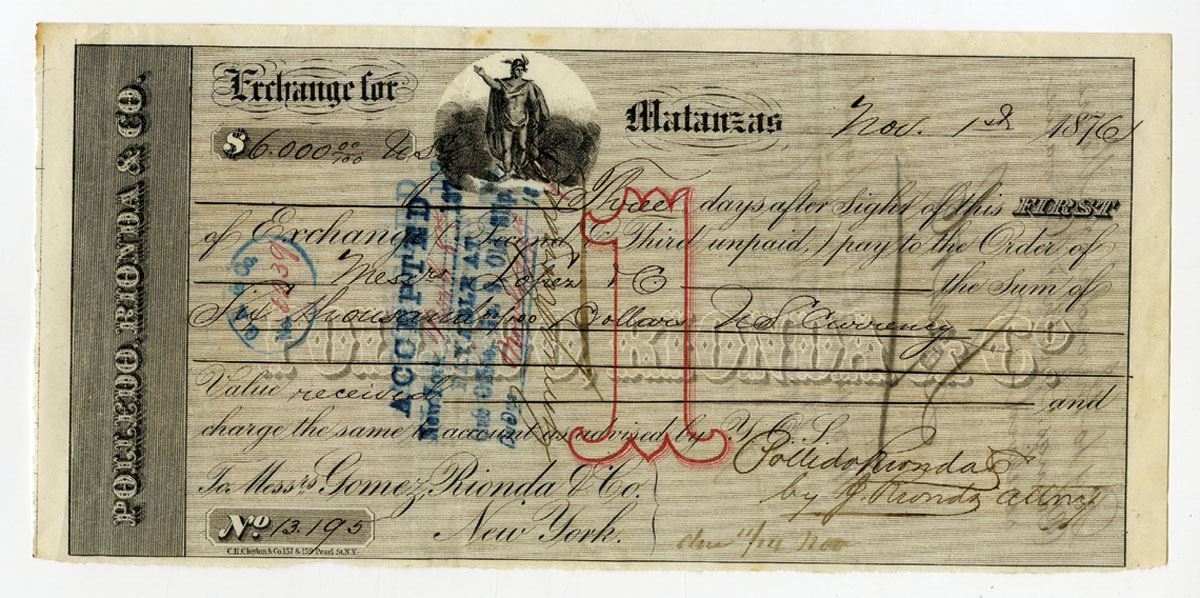 POLLEDO, RIONDA & CO.
Exchange for
Matanzas Nov. 1st 1876
$6.000 00/100 U.S.
Three days after Sight of this FIRST
of Exchange, Second & Third unpaid, pay to the Order of
Messrs Lopez & C the Sum of
Six thousand 00/100 Dollars US Currency
POLLEDO, RIONDA & Co.
Value received and
charge the same to account as advised by Y. O. S.
Polledo Rionda &
by J. Rionda attny
To Messrs Gomez, Rionda & Co.
New York.
No. 13.195
C.H. Clayton & Co. 157 & 159 Pearl St. N.Y.
1
ACCEPTED
New York
PAYABLE AT